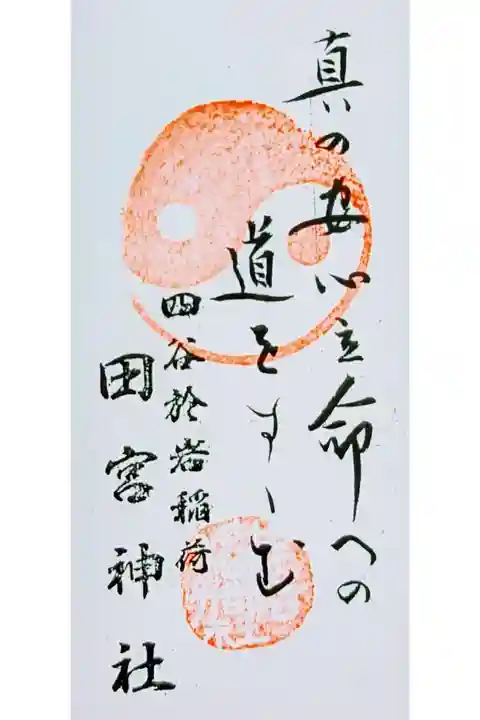 真の安心立命への
道をすゝむ
四谷於岩稲荷
田宮神社